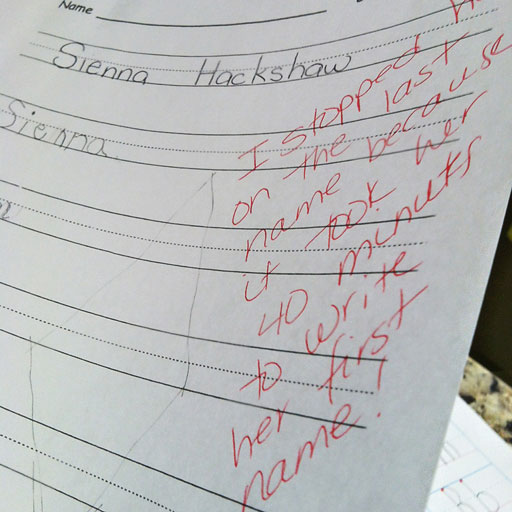 Name
Sienna Hackshaw
Sienna
I stopped
on the last
name because
it took her
40 minuts
to write
her first
name!